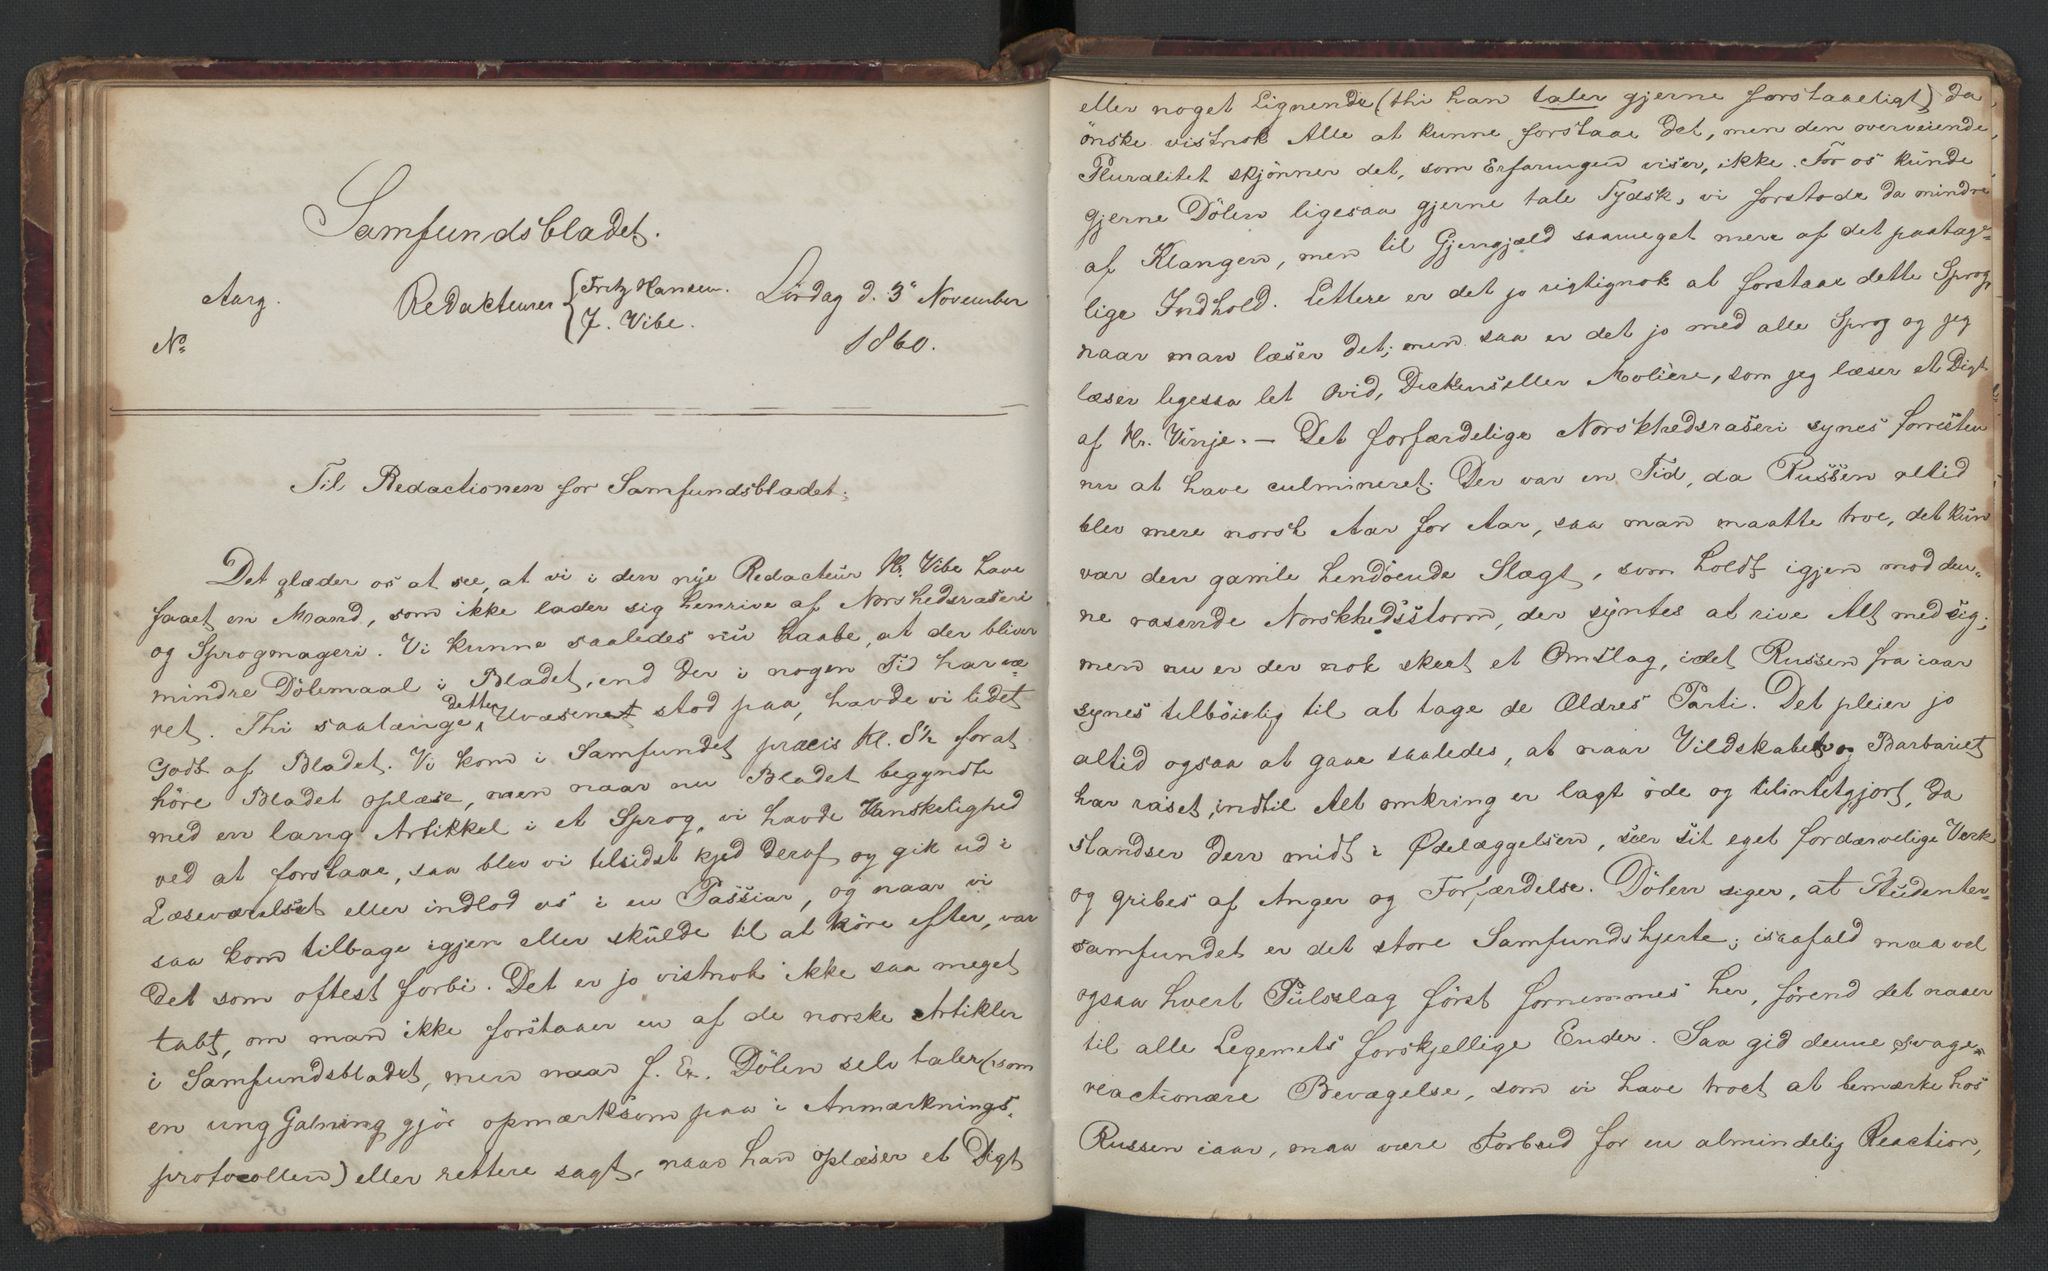 Samfundsbladet.
Aarg. Redacteurer { Fritz Hansen. Lördag d. 3' November
No J. Vibe. 1860.
Til Redactionen for Samfundsbladet.
Det glæder os at see, at vi i den nye Redacteur Hr. Vibe have
faaet en Mand, som ikke lader sig henrive af Norskhedsraseri
og Sprogmageri. Vi kunne saaledes nu haabe, at der bliver
mindre Dölemaal i Bladet, end der i nogen Tid har væ-
ret. Thi saalænge dette Uvæsenet stod paa, havde vi lidet
Godt af Bladet. Vi kom i Samfundet præcis Kl. 8½ forat
höre Bladet oplæse, men naar nu Bladet begyndte
med en lang Artikkel i et Sprog, vi havde Vanskelighed
ved at forstaae, saa blev vi tilsidst kjed deraf og gik ud i
Læseværelset eller indlod os i en Passiar, og naar vi
saa kom tilbage igjen eller skulde til at höre efter, var
det som oftest forbi. Det er jo vistnok ikke saa meget
tabt, om man ikke forstaaer en af de norske Artikler
i Samfundsbladet, men naar f. Ex. Dölen selv taler (som
en ung Galning gjör opmærksom paa i Anmærknings-
protocollen) eller rettere sagt, naar han oplæser et Digt
eller noget Lignende (thi han taler gjerne forstaaeligt) da
önske vistnok Alle at kunne forstaae det, men den overveiende
Pluralitet skjönner det, som Erfaringen viser, ikke. For os kunde
gjerne Dölen ligesaa gjerne tale Tydsk, vi forstode da mindre
af Klangen, men til Gjengjæld saameget mere af det paatage-
lige Indhold. Lettere er det jo rigtignok at forstaae dette Sprog,
naar man læser det; men saa er det jo med alle Sprog og jeg
læser ligesaa let Ovid, Dickens eller Molière, som jeg læser et Digt
af Hr. Vinje. — Det forfærdelige Norskhedsraseri synes forresten
nu at have culmineret. Der var en Tid, da Russen altid
blev mere norsk Aar for Aar, saa man maatte troe, det kun
var den gamle hendöende Slægt, som holdt igjen mod den-
ne rasende Norskhedsstorm, der syntes at rive Alt med sig;
men nu er der nok skeet et Omslag, idet Russen fra iaar
synes tilböielig til at tage de Ældres Parti. Det pleier jo
altid ogsaa at gaae saaledes, at naar Vildskabet og Barbariet
har raset, indtil Alt omkring er lagt öde og tilintetgjort, da
standser den midt i Ødelæggelsen, seer sit eget fordærvelige Værk
og gribes af Anger og Forfærdelse. Dölen siger, at Studenter-
samfundet er det store Samfundshjerte; isaafald maa vel
ogsaa hvert Pulsslag först fornemmes her, förend det naaer
til alle Legemets forskjellige Ender. Saa gid denne svage
reactionære Bevægelse, som vi have troet at bemærke hos
Russen iaar, maa være Forbud for en almindelig Reaction,